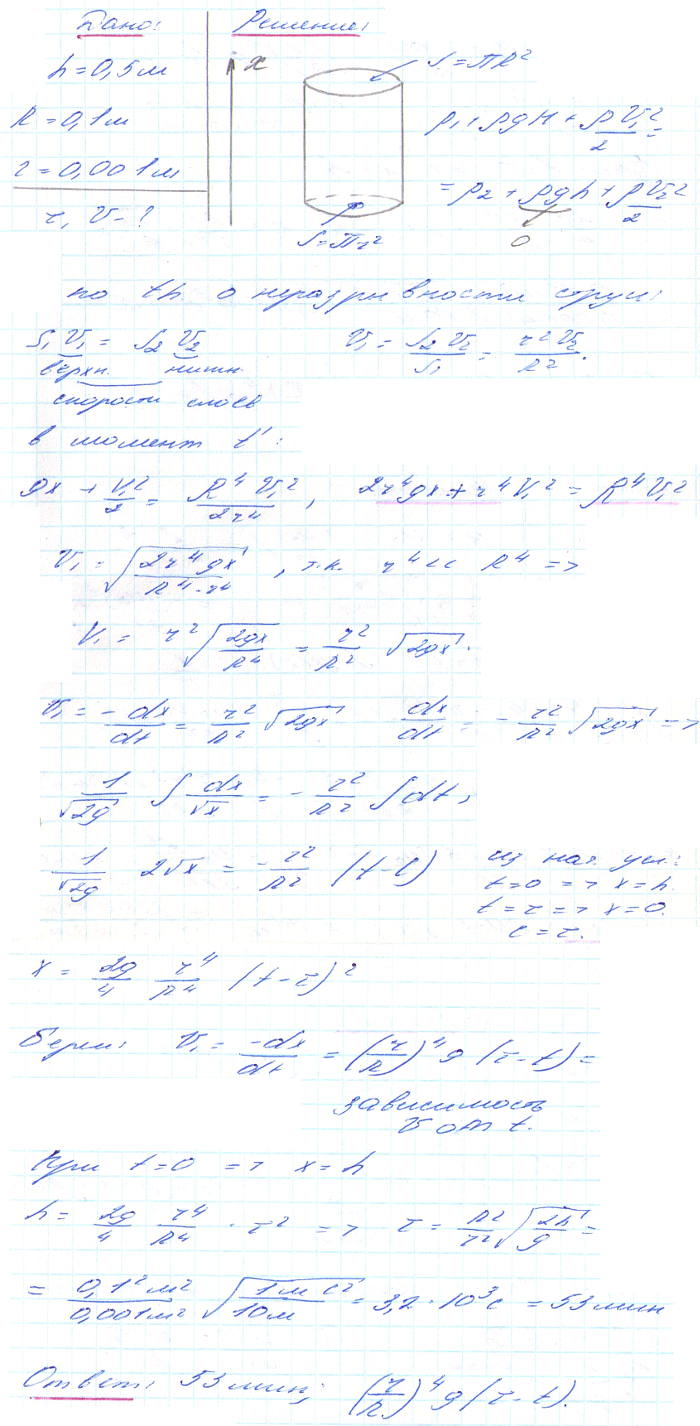 Дано: Решение:
h = 0,5 м
R = 0,1 м
r = 0,001 м
τ, V - ?
x
S = ПR²
S = Пr²
p₁ + ρgH + ρV₁²/2 =
= p₂ + ρgh + ρV₂²/2
0
по th о неразрывности струи:
S₁V₁ = S₂V₂ V₁ = S₂V₂/S₁ = r²V₂/R².
верхн. нижн.
скорости слоёв
в момент t':
gx + V₁²/2 = R⁴V₁²/2r⁴, 2r⁴gx + r⁴V₁² = R⁴V₁²
V₁ = √(2r⁴gx/(R⁴-r⁴)), т.к. r⁴ << R⁴ =>
V₁ = r²√(2gx/R⁴) = r²/R² √(2gx).
V₁ = -dx/dt = r²/R² √(2gx) dx/dt = - r²/R² √(2gx) =>
1/√(2g) ∫ dx/√x = - r²/R² ∫dt,
1/√(2g) 2√x = - r²/R² (t-C) из нач. усл:
t=0 => x=h.
t=τ => x=0.
C=τ.
x = 2g/4 r⁴/R⁴ (t-τ)²
Берем: V₁ = -dx/dt = (r/R)⁴ g (τ-t) =
зависимость
V от t.
При t=0 => x=h
h = 2g/4 r⁴/R⁴ · τ² => τ = R²/r² √(2h/g) =
= 0,1² м²/0,001 м² √(1 м с²/10 м) = 3,2 · 10³ с = 53 мин
Ответ: 53 мин; (r/R)⁴ g (τ-t).